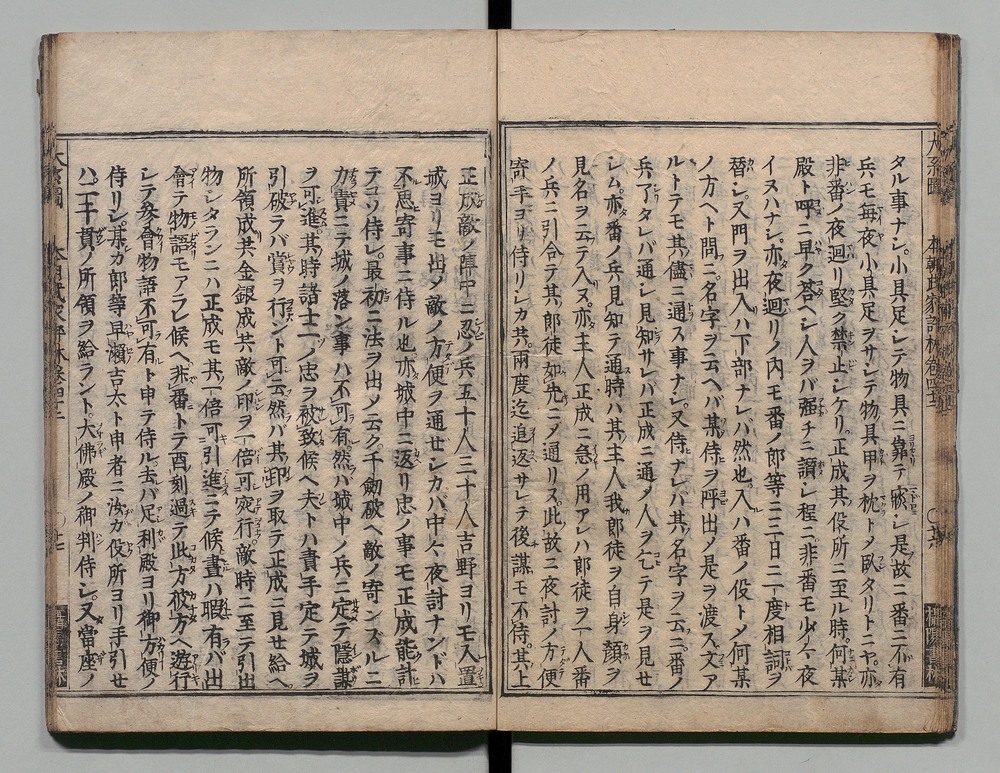 タル事ナシ。小具足シテ物具ニ靠テ寐シ是故ニ番ニ不有
兵モ毎夜小具足ヲサシテ物具甲ヲ枕トメ臥タリトニヤ。亦
非番ノ夜廻リ堅ク禁止シケリ。正成其役所ニ至ル時。何某
殿ト呼ニ早ク答ヘシ人ヲバ強チニ讃シ程ニ非番モルイ今夜
イヌハナシ。亦夜廻リノ内モ番ノ郎等ニ三日ニ一度相詞ヲ
替シ。又門ヲ出入ハ下部ナレバ然也。入ハ番ノ役トメ何某
ノ方ヘト問ニ。名字ヲ云ヘバ某侍ヲ呼出ノ是ヲ渡ス。文ア
ルトテモ其儘ニ通ス事ナシ。又侍ナレバ其名字ヲ云ニ番ノ
兵アタレバ通シ見知サレバ正成ニ通メ人ヲ乞テ是ヲ見セ
シム。亦番ノ兵見知テ通時ハ其主人我郎徒ヲ自身顔ヲ
見名ヲ云テ入ヌ。亦主人正成ニ急ノ用アレハ郎徒ヲ一人番
ノ兵ニ引合テ其郎徒如先ニメ通リス。此故ニ夜討ノ方便
寄手ヨリ侍リシカ共。兩度迄追返サレテ後謀モ不侍。其上
正成敵ノ陣中ニ忍ノ兵五十人三十人吉野ヨリモ入置
城ヨリモ出メ敵ノ方便ヲ通ゼシカバ中々夜討ナンドハ
不思寄事ニ侍ル也亦城中ニ返リ忠ノ事モ正成能計
テコソ侍レ。最初ニ法ヲ出メ云ク千劔破ヘ敵ノ寄ンズルニ
力責ニテ城ノ落ン事ハ不可有然バ城中ノ兵ニ定テ隱謀
ヲ可進其時諸士ニノ忠ヲ被致候ヘ夫トハ責手定テ城ヲ
引破ラバ賞ヲ行ント可云然バ其卽ヲ取テ正成ニ見セ給ヘ
所領成共金銀成共敵ノ印ヲ一倍可宛行敵時ニ至テ引出
物シタランニハ正成モ其一倍可引進ニテ候晝ハ暇有バ出
會テ物語モアラレ候ヘ非番トテ酉刻過テ此方彼方ヘ遊行
シテ參會物語不可有ト申テ侍ル去バ足利殿ヨリ御方便ノ
侍リシ某カ郎等早瀬吉太ト申者ニ汝カ役所ヨリ手引セ
ハ二十貫ノ所領ヲ給ラント。大佛殿ノ御判侍シ。又當座ノ